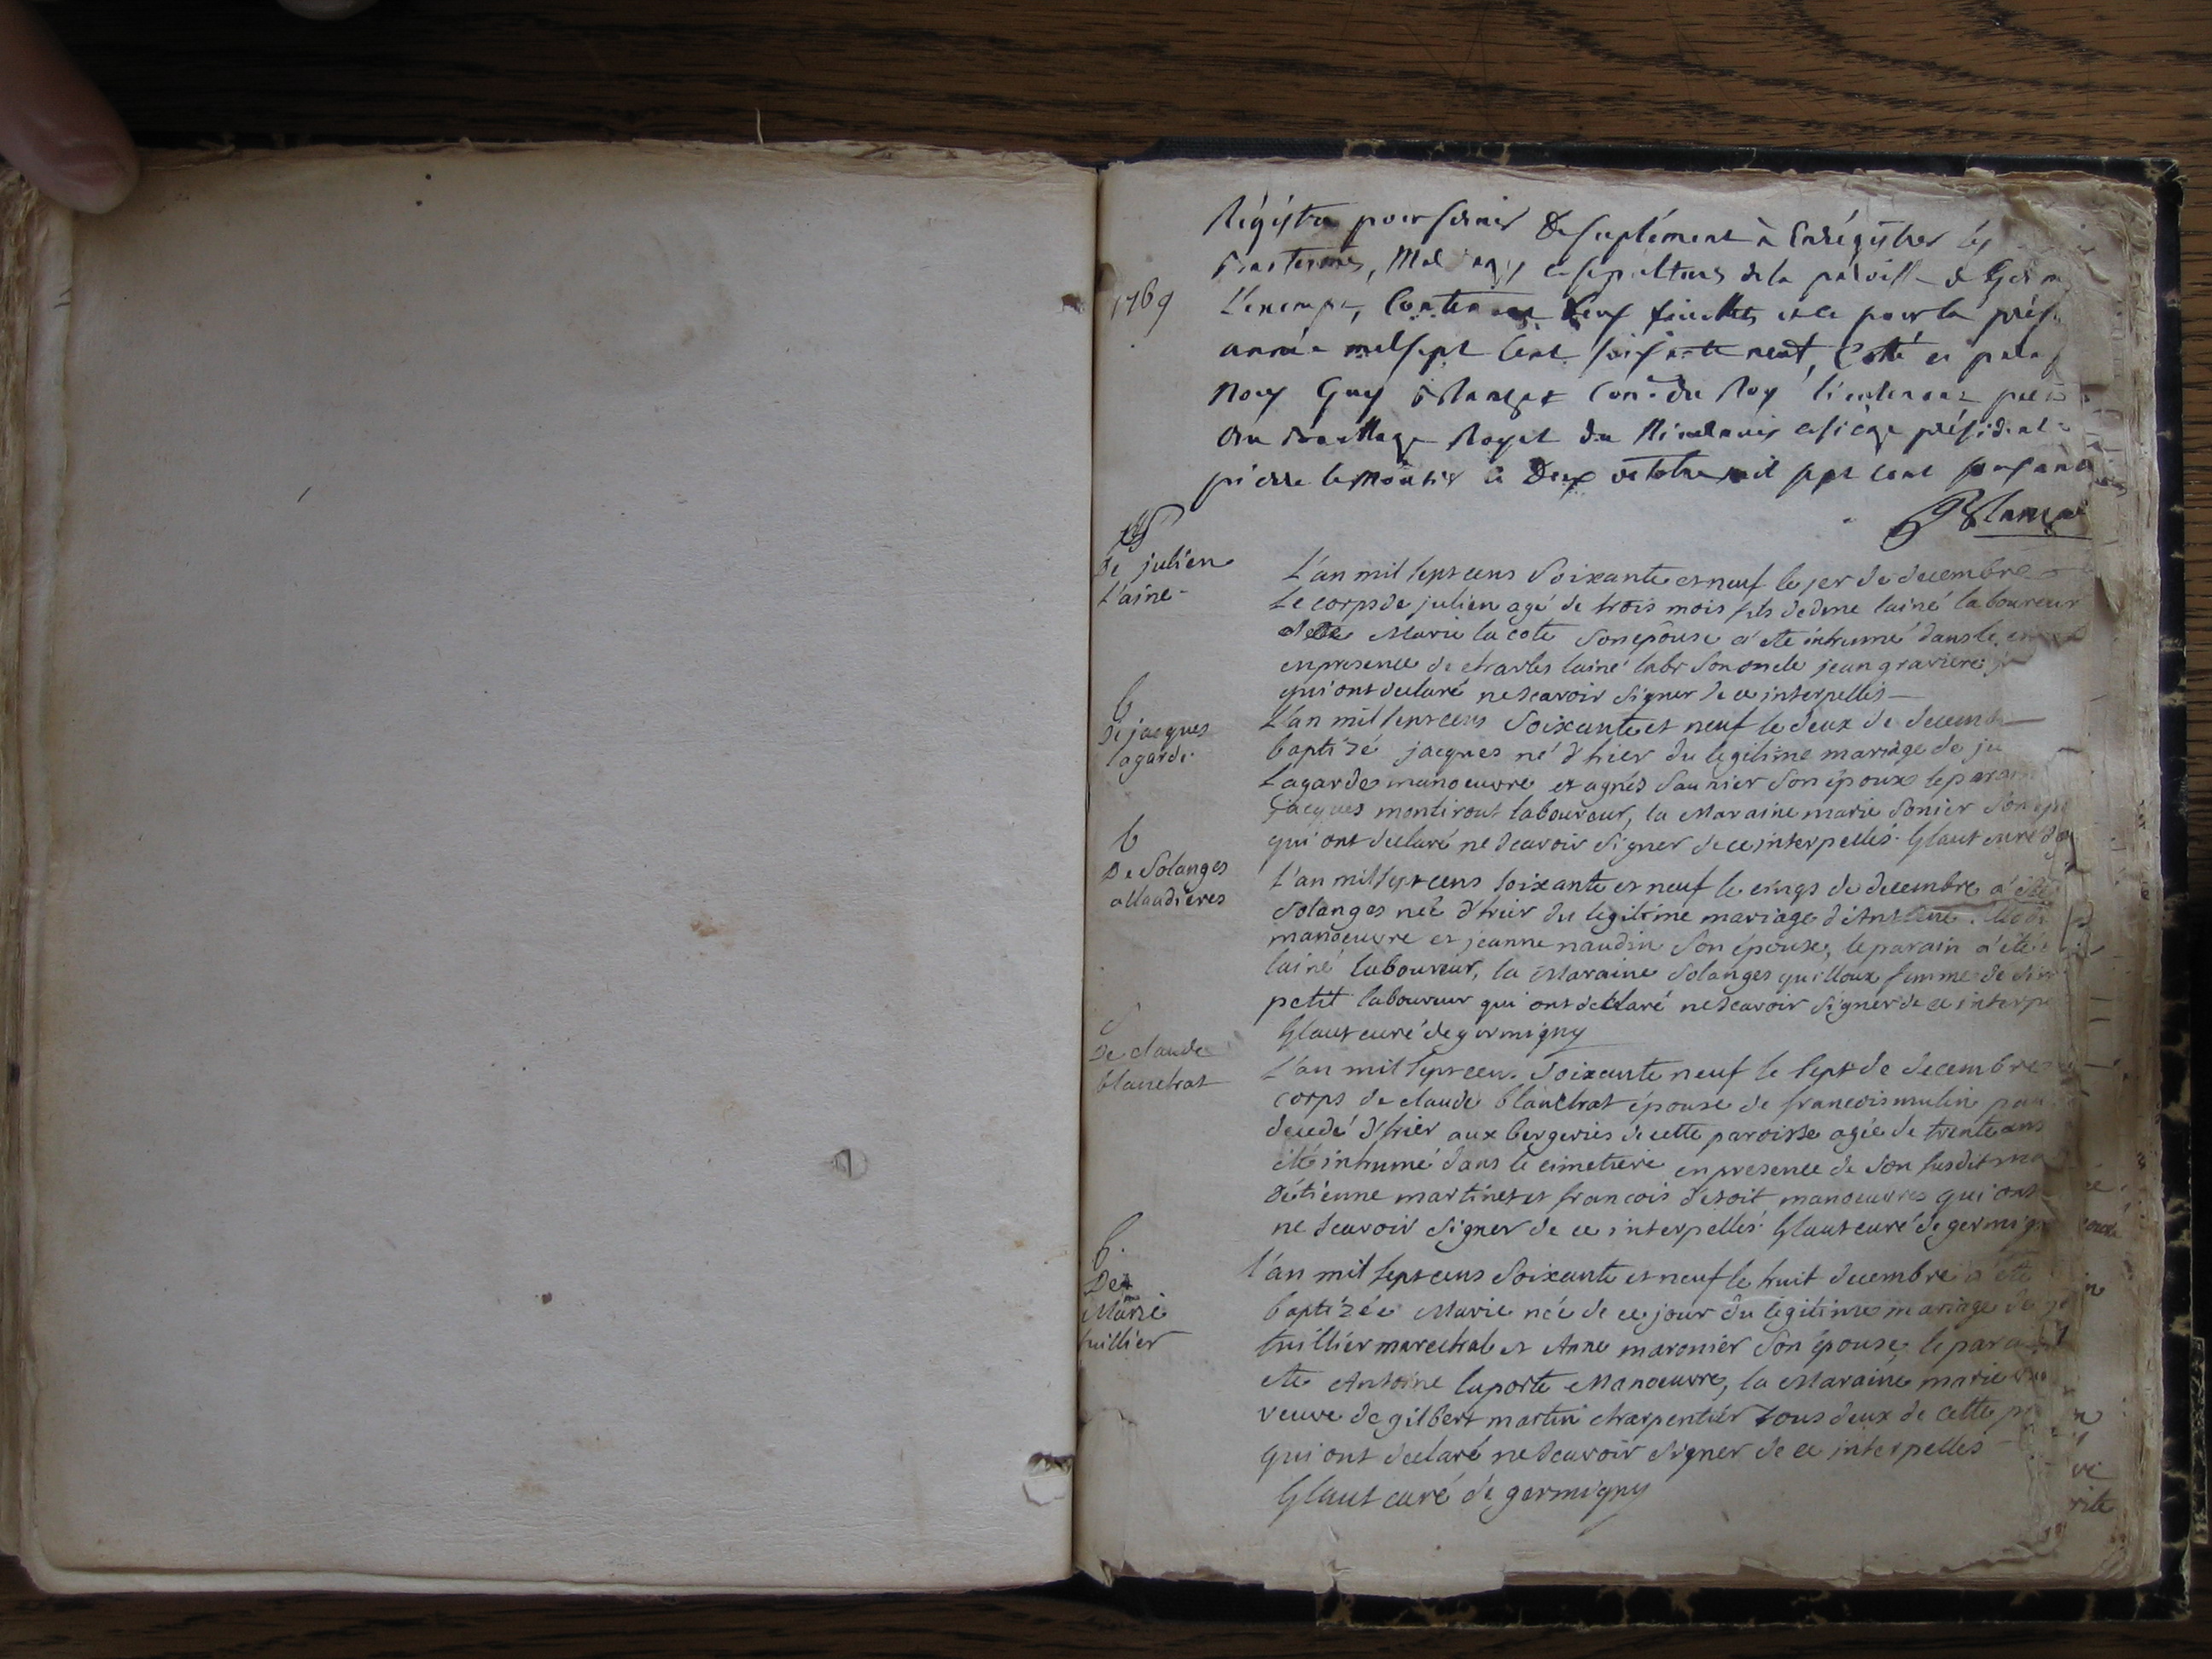 Régistre pour servir de suplément à Enrégistrer les
Baptesmes, Mariages et sepultures de la paroisse de Germ
1769
L'exempt, Contenant deux feuillets et ce pour la prés
année mil sept cent soixante neuf, Cotté et para
Nous Guy Blanzat Con.er du Roy lieutenant
du Bailliage Royal du Nivernois et siège présidial
pierre le Moutier ce deux octobre mil sept cent soixante
S
De julien
L'ainé
L'an mil sept cens Soixante et neuf le jer de decembre
Le corps de julien agé de trois mois fils de laine laboureur
Marie la cote Son epouse a ete inhumé dans le
en presence de charles lainé labr Son oncle jean graviere
qui ont declaré ne scavoir signer de ce interpellés
b
De jacques
lagarde
L'an mil sept cens Soixante et neuf le deux de decemb
baptisé jacques né d'hier du legitime mariage de ju
Lagarde manoeuvre et agnés Saunier Son épouse le parain
jacques montirout laboureur, la Maraine marie Sonier Son ep
qui ont declaré ne scavoir signer de ce interpellés Glaut curé de
b
De Solanges
allaudieres
L'an mil sept cens soixante et neuf le cinqs de decembre a été
Solanges née d'hier du legitime mariage d'
manoeuvre et jeanne naudin Son épouse, le parain a été
lainé laboureur, la Maraine Solanges guilloux femme de
petit laboureur qui ont declaré ne scavoir signer de ce interpe
Glaut curé de germigny
S
De claude
blanchat
L'an mil sept cens Soixante neuf le sept de decembre
corps de claude blanchat épouse de francois mulin
decedé d'hier aux bergeries de cette paroisse agée de trente ans
été inhumé dans le cimetiere en presence de Son susdit ma
d'étienne martinet et francois desoit manoeuvres qui ont
ne scavoir signer de ce interpellés Glaut curé de germign
b.
De
Marie
huillier
L'an mil sept cens Soixante et neuf le huit decembre a été
baptizée Marie née de ce jour du legitime mariage de
huillier marechal et Anne maronier Son épouse le para
ete Antoine laporte Manoeuvre, la Maraine marie
veuve de gilbert martin charpentier tous deux de cette p
qui ont declaré ne scavoir signer de ce interpellés
Glaut curé de germigny